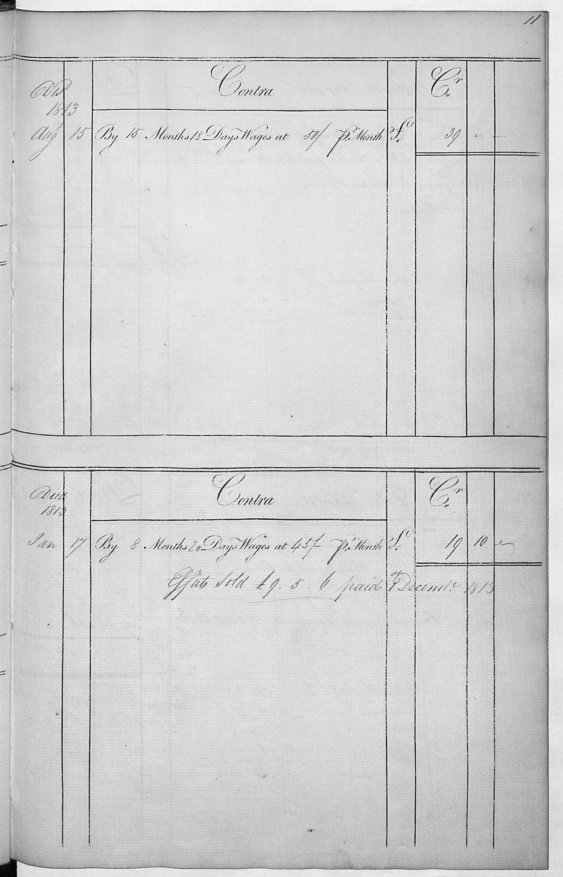 11
Contra Cr
1813
Aug 15 By 15 Months 18 Days Wages at 50/ pr Month £ 39 - -
Contra Cr
Died
1813
Jan 17 By 8 Months 20 Days Wages at 45/ pr Month £ 19 10 -
Effects Sold £9. 5. 6 paid Decembr 1813